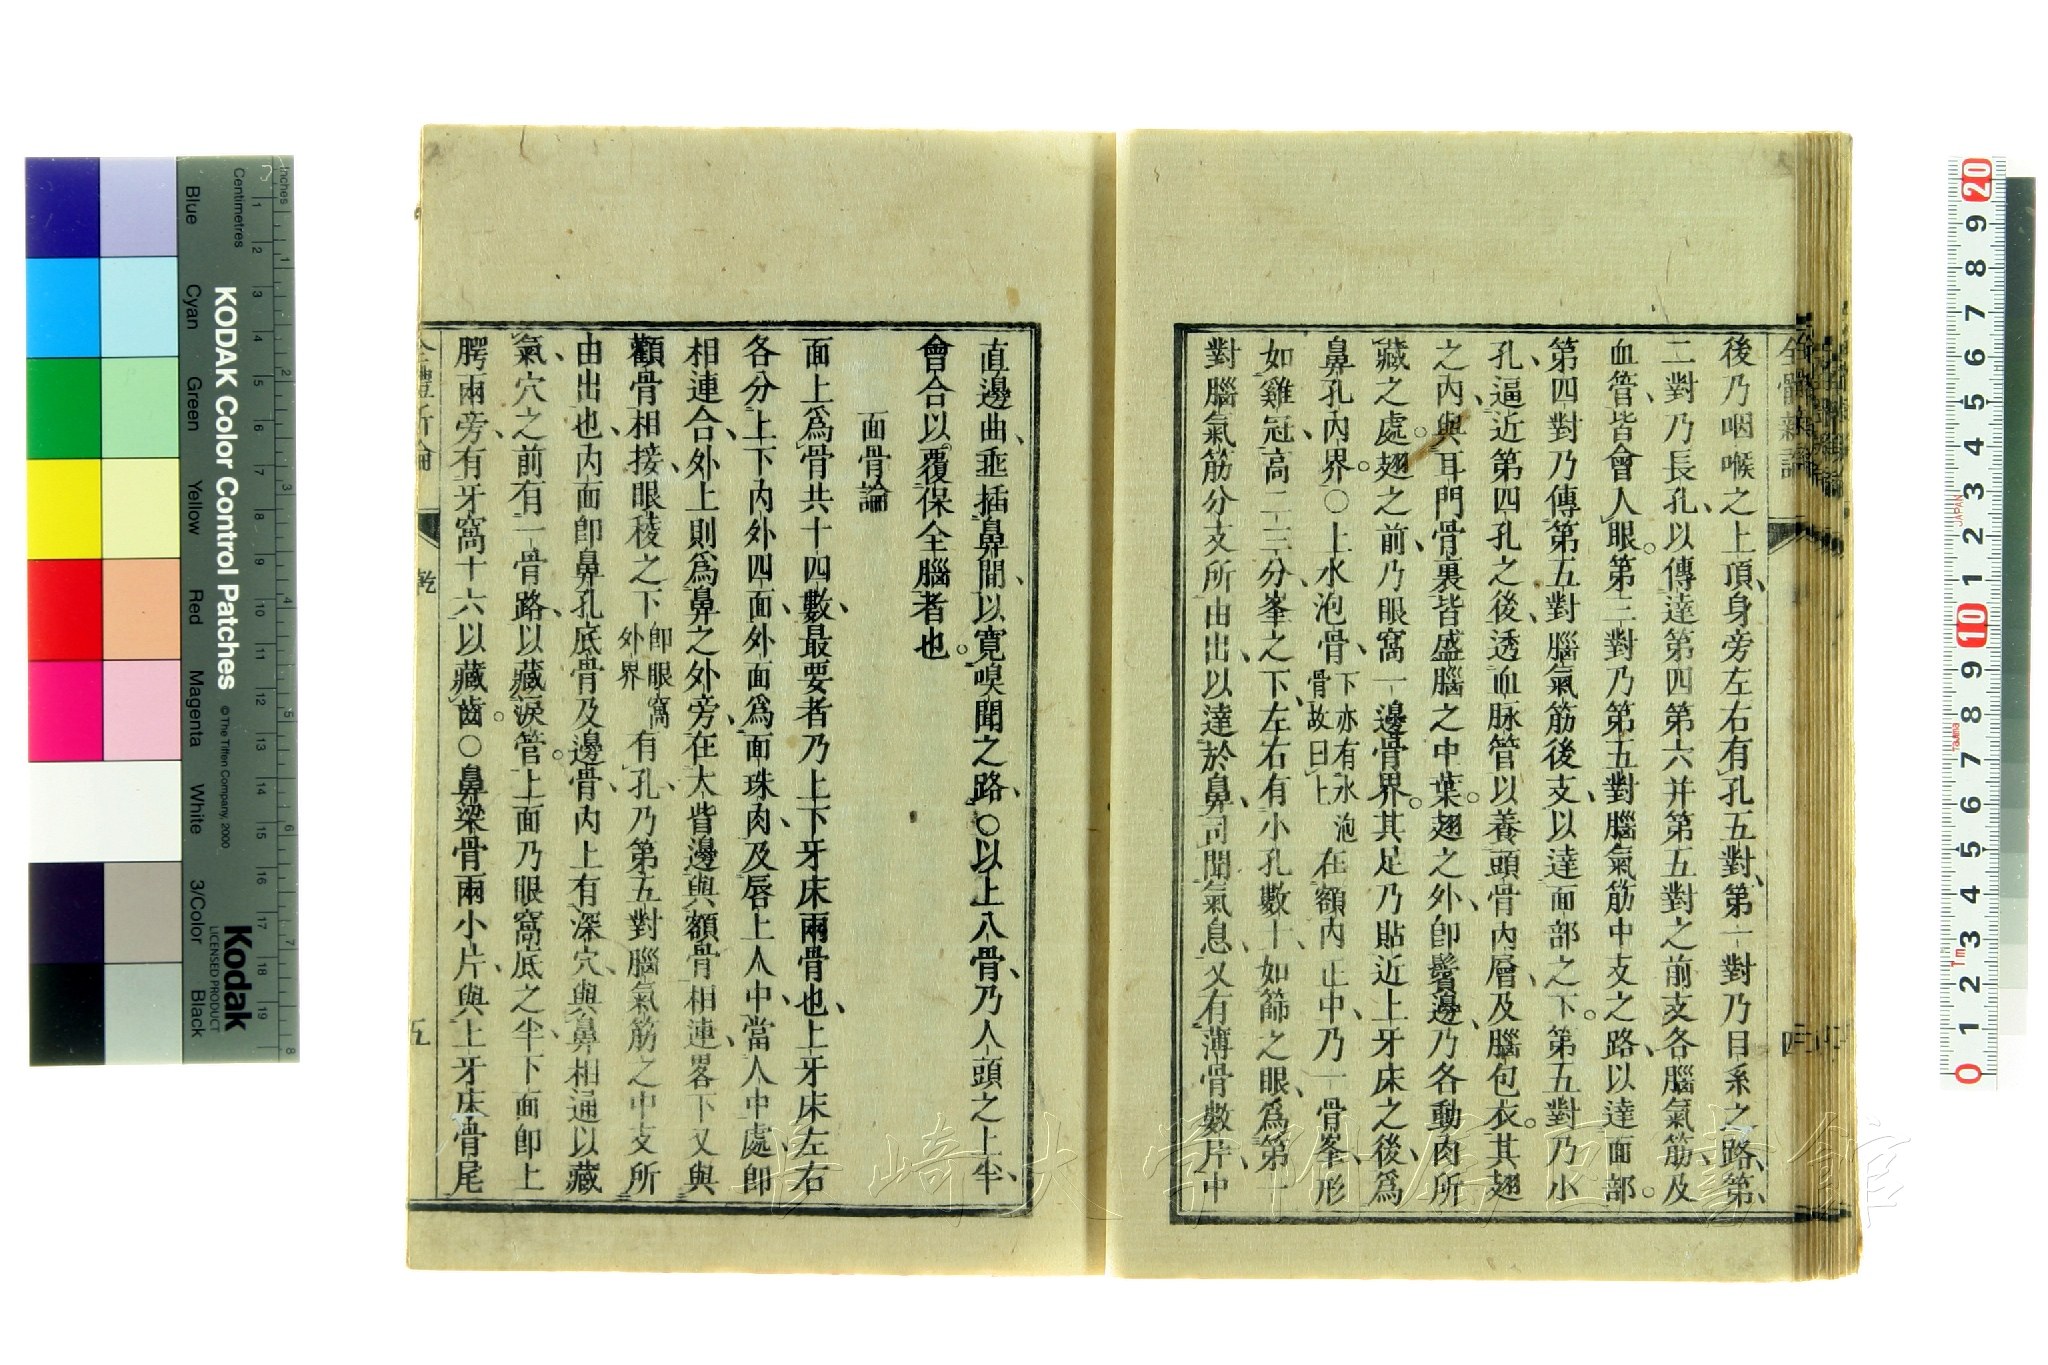 全體新論
四
後乃咽喉之上頂、身旁左右有孔五對、第一對乃目系之路、第
二對乃長孔、以傳達第四第六并第五對之前支各腦氣筋、及
血管、皆會人眼。第三對乃第五對腦氣筋中支之路、以達面部。
第四對乃傳第五對腦氣筋後支、以達面部之下。第五對乃小
孔、逼近第四孔之後、透血脉管以養頭骨內層、及腦包衣。其翅
之內、與耳門骨裏皆盛腦之中葉。翅之外、卽鬢邊、乃各動肉所
藏之處。翅之前、乃眼窩一邊骨界。其足乃貼近上牙床之後、爲
鼻孔內界。○上水泡骨、下亦有水泡骨故曰上在額內正中、乃一骨峯、形
如雞冠、高二三分、峯之下、左右有小孔數十、如篩之眼、爲第一
對腦氣筋分支所由出、以達於鼻、司聞氣息、又有薄骨數片、中
直邊曲、垂插鼻間、以寬嗅聞之路。○以上八骨、乃人頭之上半、
會合以覆保全腦者也。
面骨論
面上爲骨共十四數、最要者乃上下牙床兩骨也、上牙床左右
各分上下內外四面、外面爲面珠肉、及唇上人中、當人中處、卽
相連合、外上則爲鼻之外旁、在大眥邊與額骨相連、畧下又與
顴骨相接、眼稜之下卽眼窩外界有孔、乃第五對腦氣筋之中支所
由出也、內面卽鼻孔底骨及邊骨。內上有深穴、與鼻相通以藏
氣、穴之前有一骨路、以藏淚管。上面乃眼窩底之半、下面卽上
腭兩旁、有牙窩十六以藏齒。○鼻梁骨兩小片、與上牙床骨尾
全體新論
乾
五
長崎大学附属図書館
KODAK Color Control Patches
© The Tiffen Company, 2000
Kodak
LICENSED PRODUCT
Inches
Centimetres
Blue
Cyan
Green
Yellow
Red
Magenta
White
3/Color
Black
1 2 3 4 5 6 7 8 9 10 11 12 13 14 15 16 17 18 19
1 2 3 4 5 6 7 8
20
9
8
7
6
5
4
3
2
1
10
9
8
7
6
5
4
3
2
1
0
JAPAN